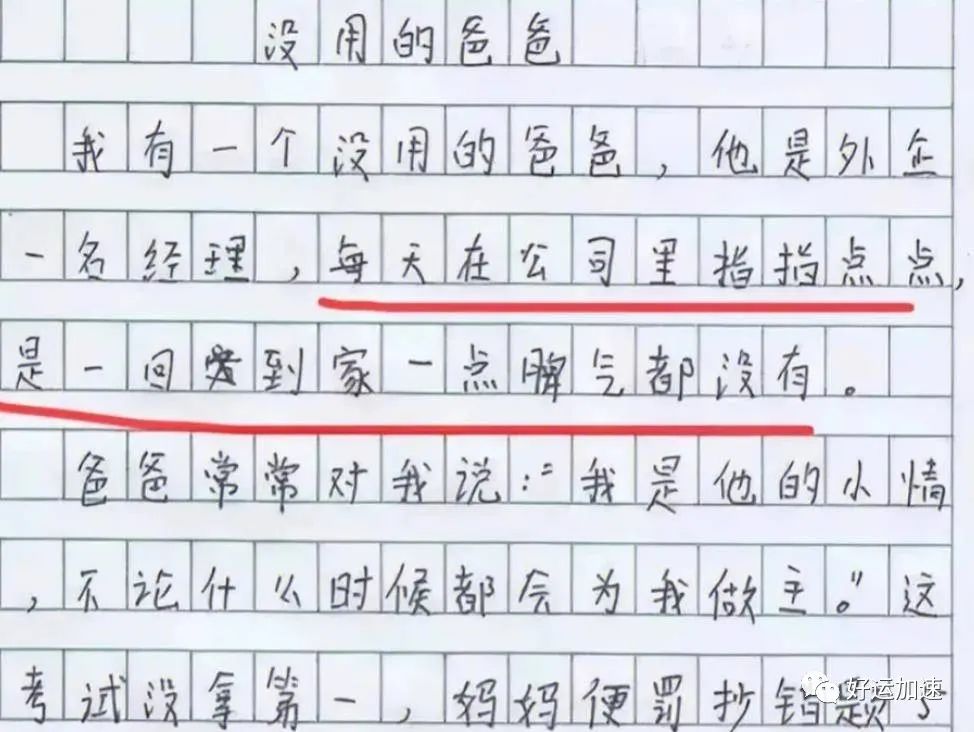 没用的爸爸
我有一个没用的爸爸，他是外企
一名经理，每天在公司里指指点点，
是一回到家一点脾气都没有。
爸爸常常对我说："我是他的小情
，不论什么时候都会为我做主。"这
考试没拿第一，妈妈便罚抄错题了
好运加速